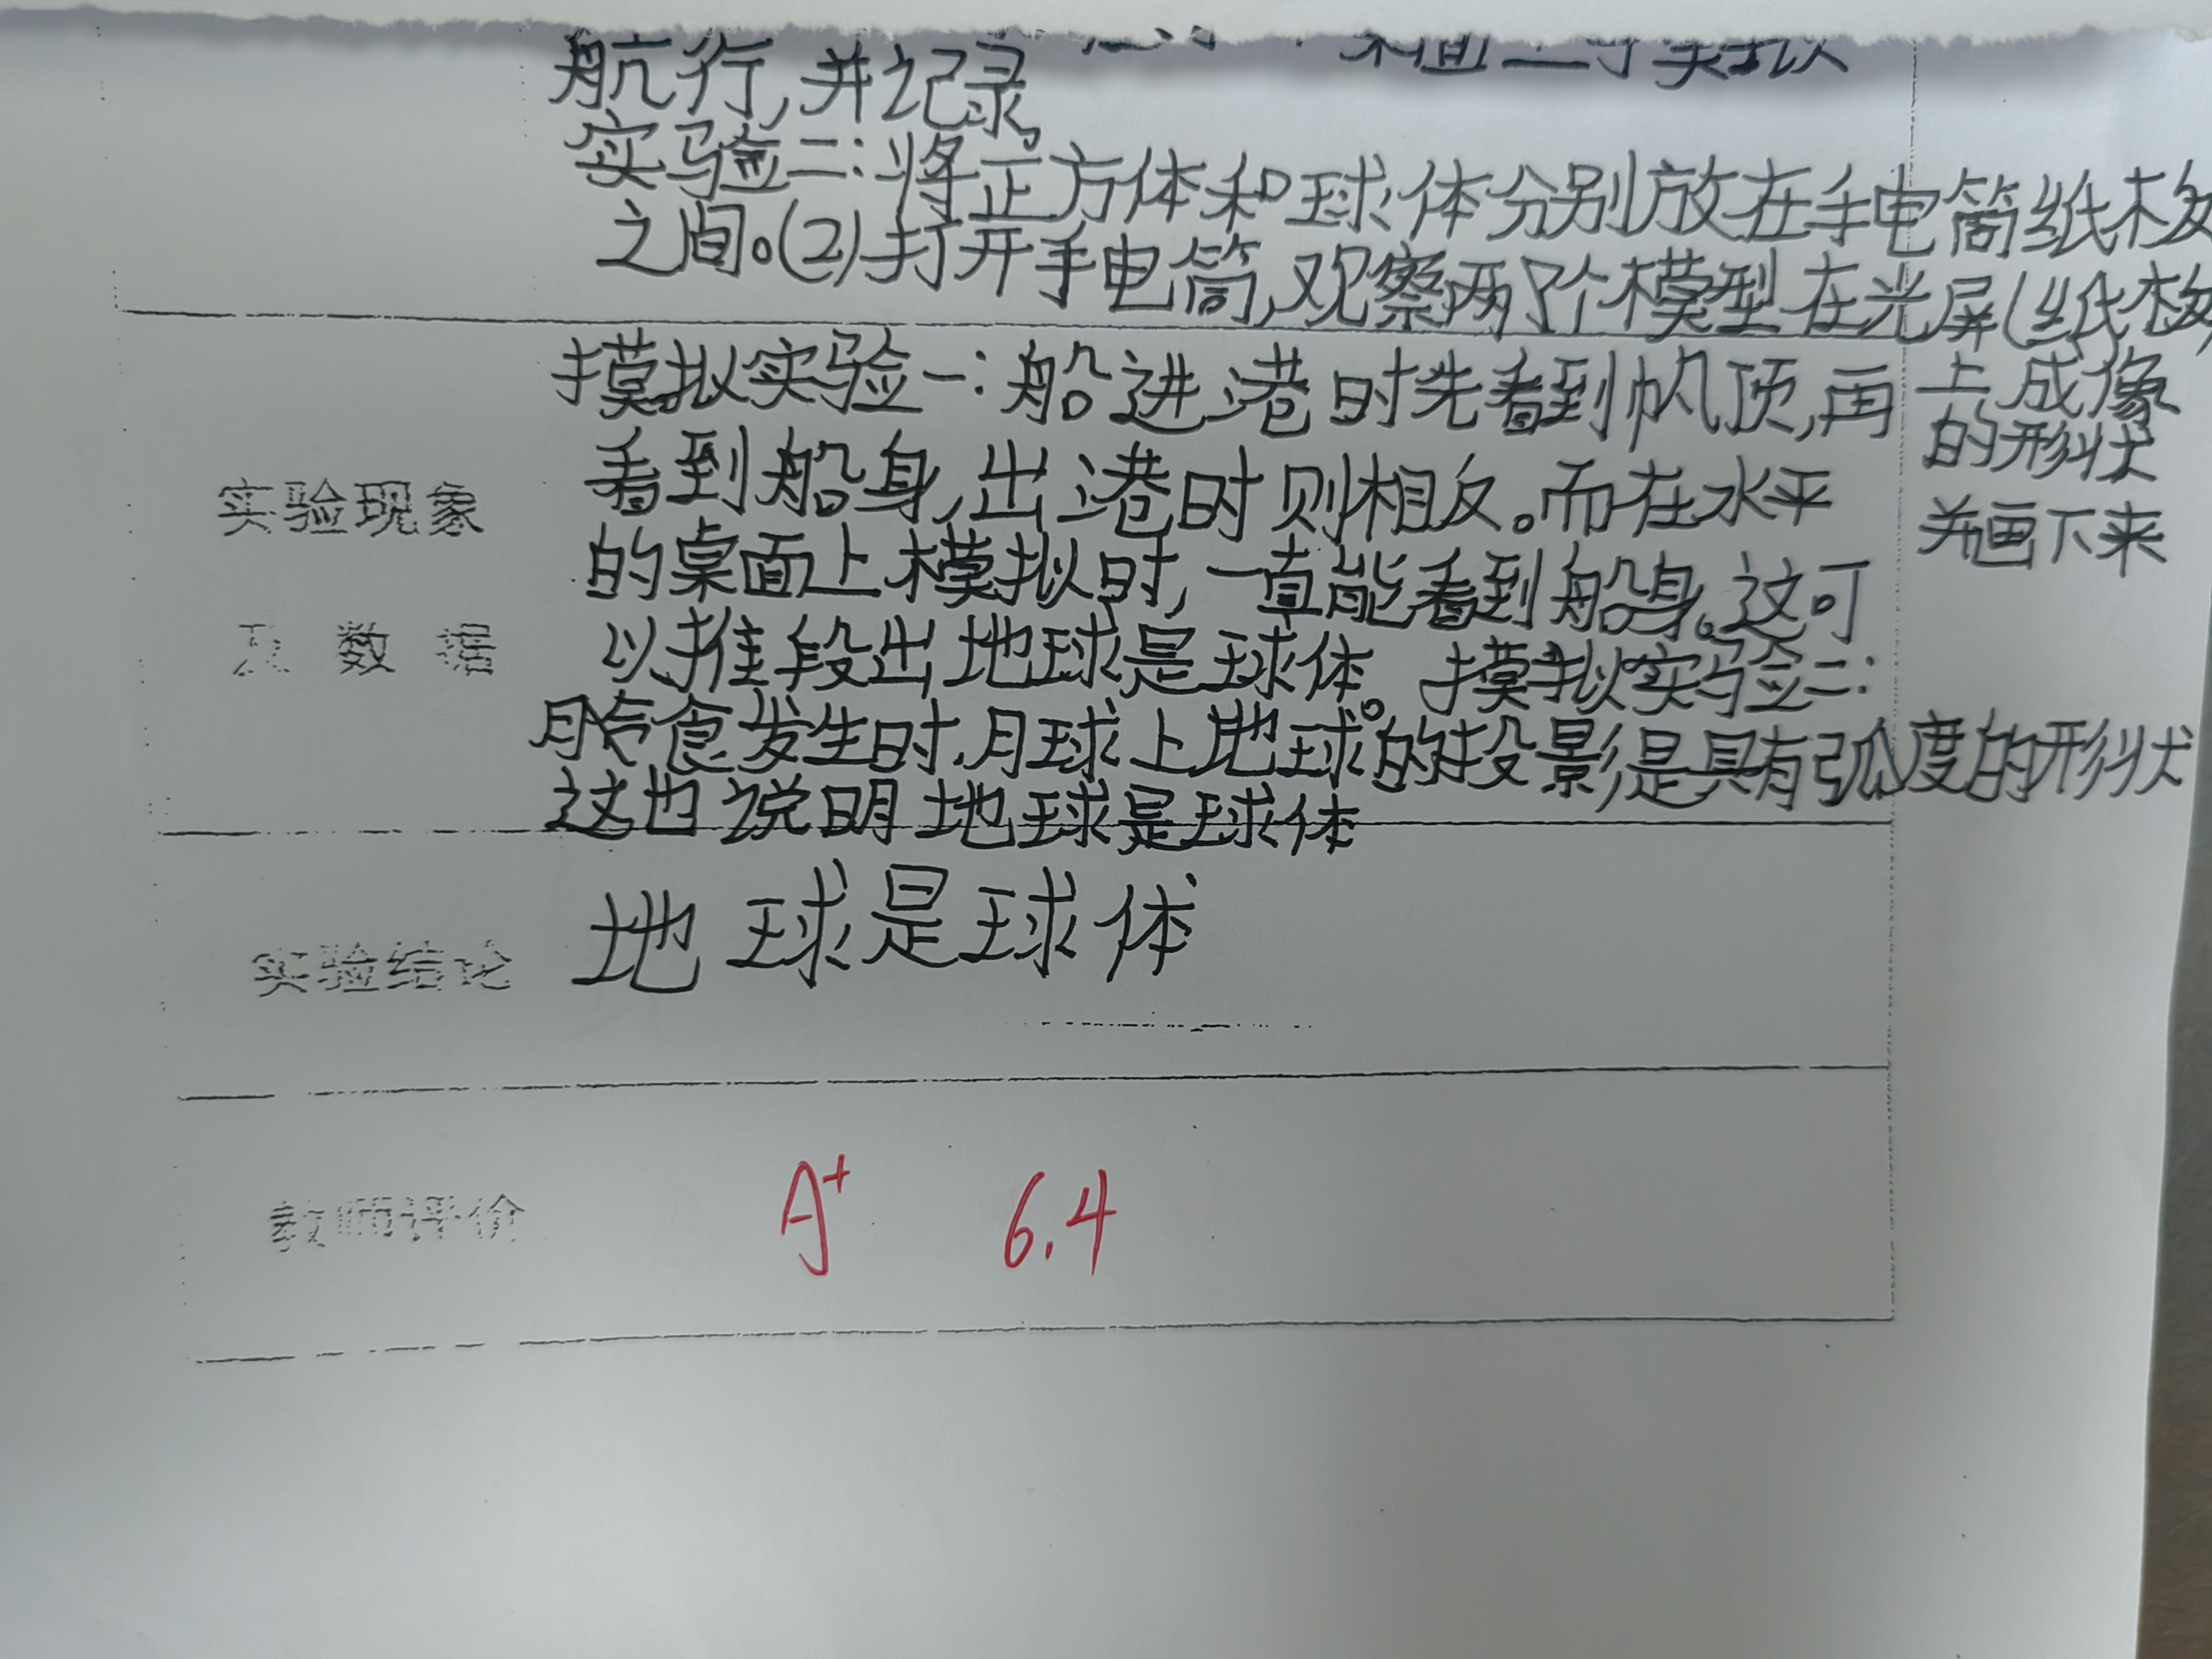 航行,并记录
实验二:将正方体和球体分别放在手电筒纸板
之间。(2)打开手电筒,观察两个模型在光屏(纸板)
上成像
的形状
并画下来
实验现象
及数据
摸拟实验一:船进港时先看到帆顶,再
看到船身,出港时则相反。而在水平
的桌面上模拟时,一直能看到船身。这可
以推段出地球是球体。摸拟实验二:
月食发生时,月球上地球的投影是具有弧度的形状
这也说明地球是球体
实验结论
地球是球体
教师评价
A+ 6.4